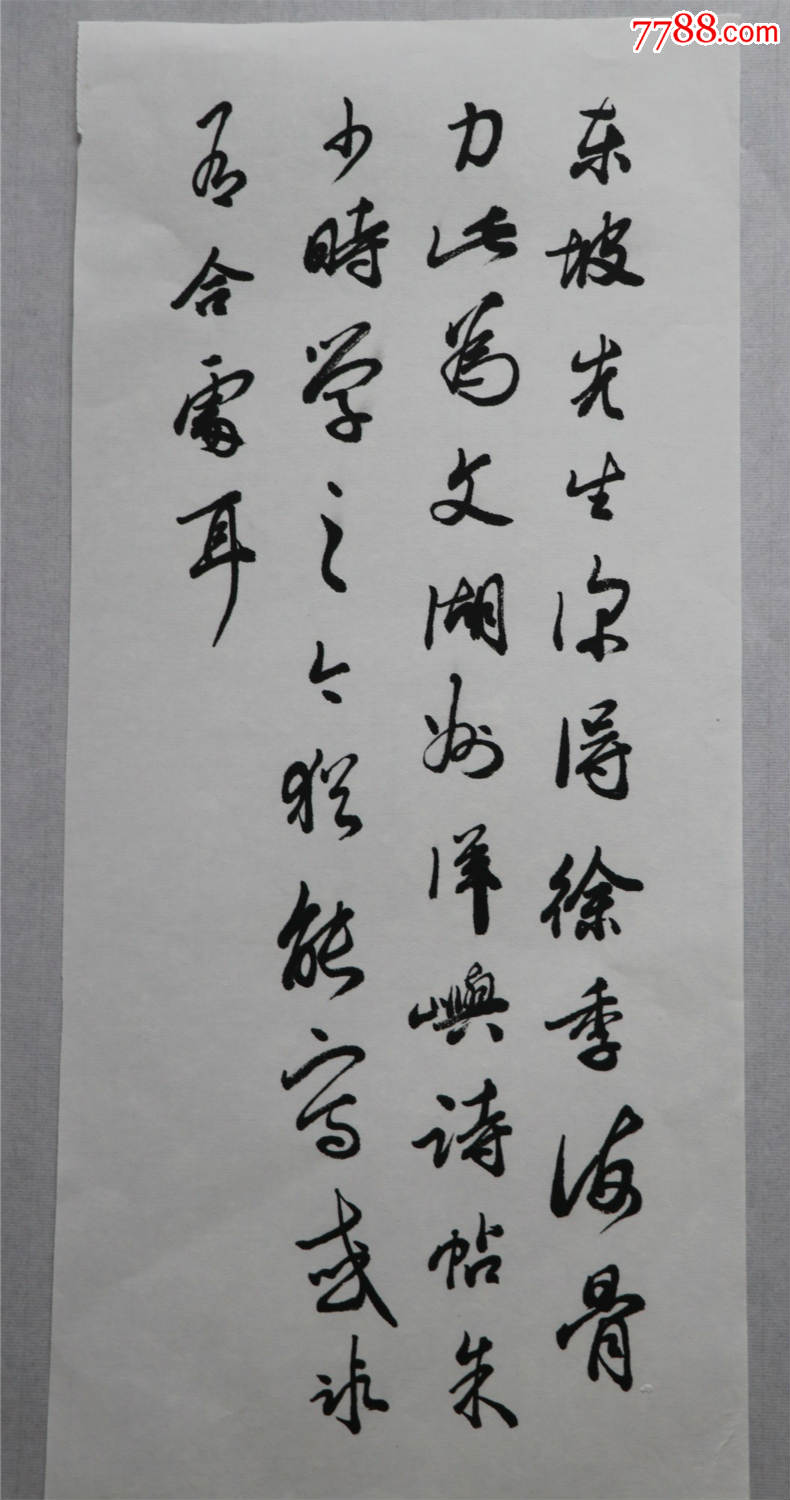 7788.com
東坡先生深得徐季海骨
力此為文湖州洋嶼詩帖朱
少時学之今猶能写或
有合處耳